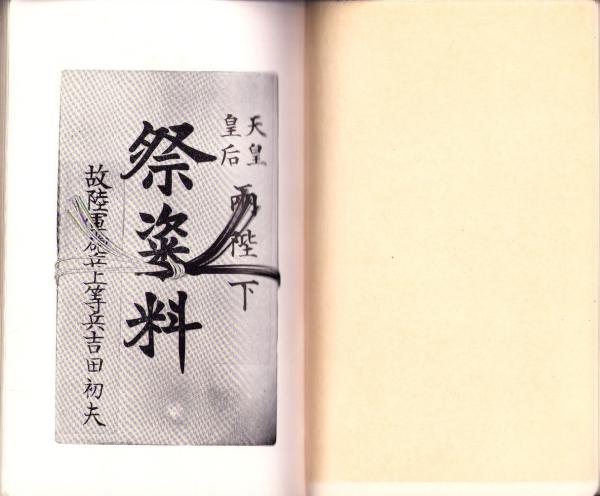 天皇
皇后
両陛下
祭粢料
故陸軍砲兵上等兵吉田初夫